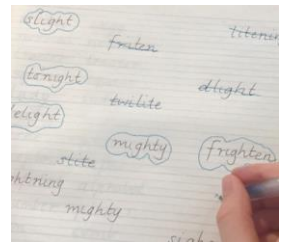 slight
friten
tonight
twilite
dlight
elight
mighty
frighten
slite
htning
mighty